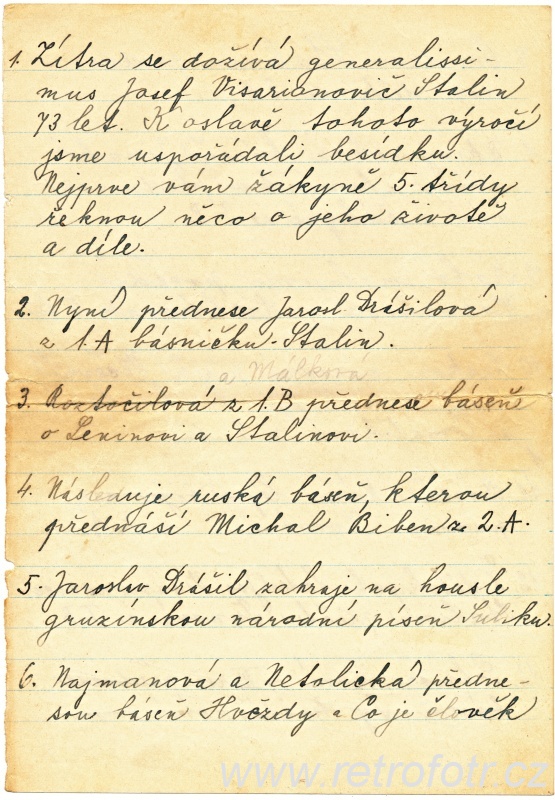 1. Zítra se dožívá generalissi-
mus Josef Visarianovič Stalin
73 let. K oslavě tohoto výročí
jsme uspořádali besídku.
Nejprve vám žákyně 5. třídy
řeknou něco o jeho životě
a díle.
2. Nyní přednese Jarosl. Drášilová
z 1.A básničku - Stalin.
a Málkova
3. Roztočilová z 1.B přednese báseň
o Leninovi a Stalinovi.
4. Následuje ruská báseň, kterou
přednáší Michal Biben z 2.A.
5. Jaroslav Drášil zahraje na housle
gruzínskou národní píseň Suliku.
6. Najmanová a Netolická předne-
sou báseň Hvězdy a Co je člověk
www.retrofotr.cz